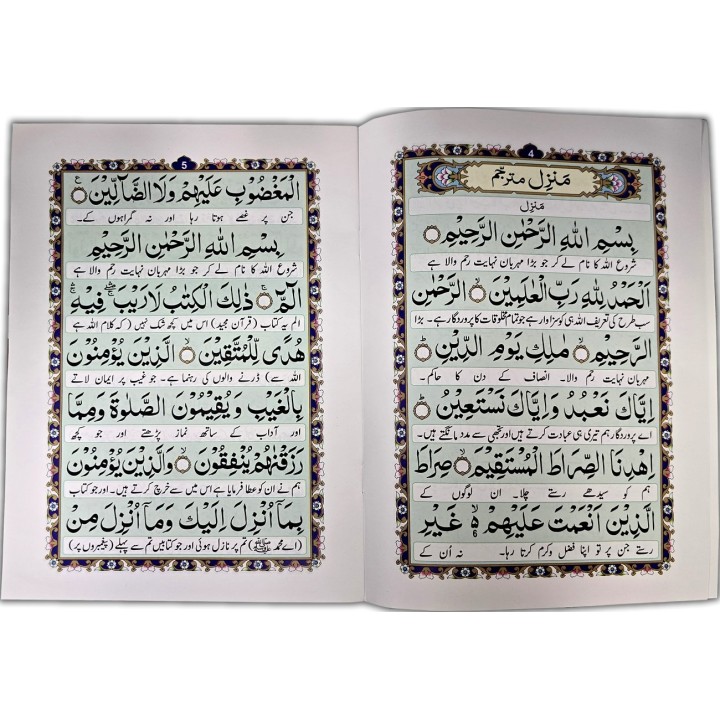 4
مَنزِل مترجم
مَنزِل
بِسْمِ اللهِ الرَّحْمٰنِ الرَّحِيْمِ
شروع اللہ کا نام لے کر جو بڑا مہربان نہایت رحم والا ہے
اَلْحَمْدُ لِلّٰهِ رَبِّ الْعٰلَمِيْنَ الرَّحْمٰنِ
سب طرح کی تعریف اللہ ہی کو سزاوار ہے جو تمام مخلوقات کا پروردگار ہے۔ بڑا
الرَّحِيْمِ مٰلِكِ يَوْمِ الدِّيْنِ
مہربان نہایت رحم والا۔ انصاف کے دن کا حاکم۔
اِيَّاكَ نَعْبُدُ وَاِيَّاكَ نَسْتَعِيْنُ
اے پروردگار ہم تیری ہی عبادت کرتے ہیں اور تجھی سے مدد مانگتے ہیں۔
اِهْدِنَا الصِّرَاطَ الْمُسْتَقِيْمَ صِرَاطَ
ہم کو سیدھے رستے چلا۔ ان لوگوں کے
الَّذِيْنَ اَنْعَمْتَ عَلَيْهِمْ غَيْرِ
رستے جن پر تو اپنا فضل وکرم کرتا رہا۔ نہ اُن کے
5
الْمَغْضُوْبِ عَلَيْهِمْ وَلَا الضَّآلِّيْنَ
جن پر غصے ہوتا رہا اور نہ گمراہوں کے۔
بِسْمِ اللهِ الرَّحْمٰنِ الرَّحِيْمِ
شروع اللہ کا نام لے کر جو بڑا مہربان نہایت رحم والا ہے
الٓمّٓ ذٰلِكَ الْكِتٰبُ لَا رَيْبَ فِيْهِ
الم یہ کتاب (قرآن مجید) اس میں کچھ شک نہیں (کہ کلام اللہ ہے
هُدًى لِّلْمُتَّقِيْنَ الَّذِيْنَ يُؤْمِنُوْنَ
اللہ سے) ڈرنے والوں کی رہنما ہے۔ جو غیب پر ایمان لاتے
بِالْغَيْبِ وَيُقِيْمُوْنَ الصَّلٰوةَ وَمِمَّا
اور آداب کے ساتھ نماز پڑھتے اور جو کچھ
رَزَقْنٰهُمْ يُنْفِقُوْنَ وَالَّذِيْنَ يُؤْمِنُوْنَ
ہم نے ان کو عطا فرمایا ہے اس میں سے خرچ کرتے ہیں۔ اور جو کتاب
بِمَآ اُنْزِلَ اِلَيْكَ وَمَآ اُنْزِلَ مِنْ
(اے محمد ﷺ) تم پر نازل ہوئی اور جو کتابیں تم سے پہلے (پیغمبروں پر)